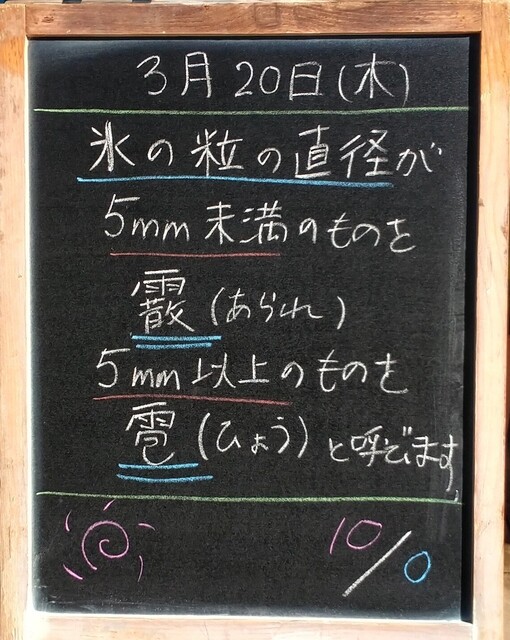 3月20日(木)
氷の粒の直径が
5mm未満のものを
霰(あられ)
5mm以上のものを
雹(ひょう)と呼びます。
10/0